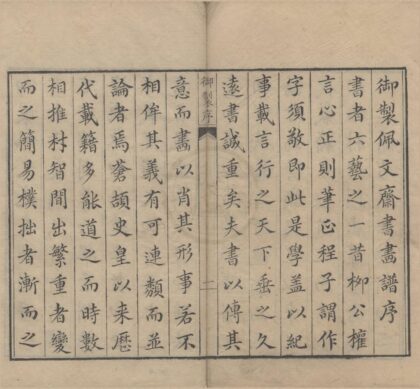 御製佩文齋書畫譜序
書者六藝之一昔柳公權
言心正則筆正程子謂作
字須敬即此是學蓋以紀
事載言行之天下垂之久
遠書誠重矣夫書以傳其
御製序
二
意而畫以肖其形事若不
相侔其義有可連類而並
論者焉蒼頡史皇以来歷
代載籍多能道之而時數
相推材智間出繁重者變
而之簡易樸拙者漸而之